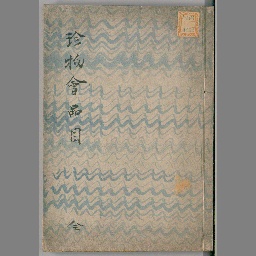 珍物會品目 全